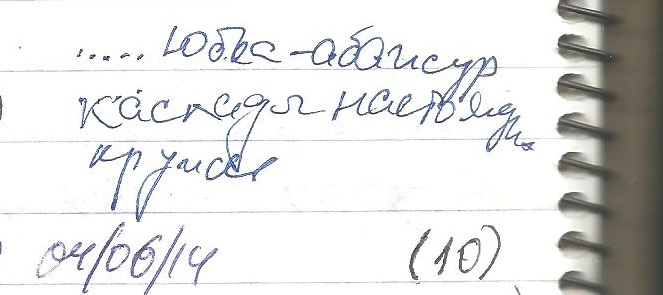 ..... Юбка-абажур
каскады настоящих
кружев
04/06/14 (10)